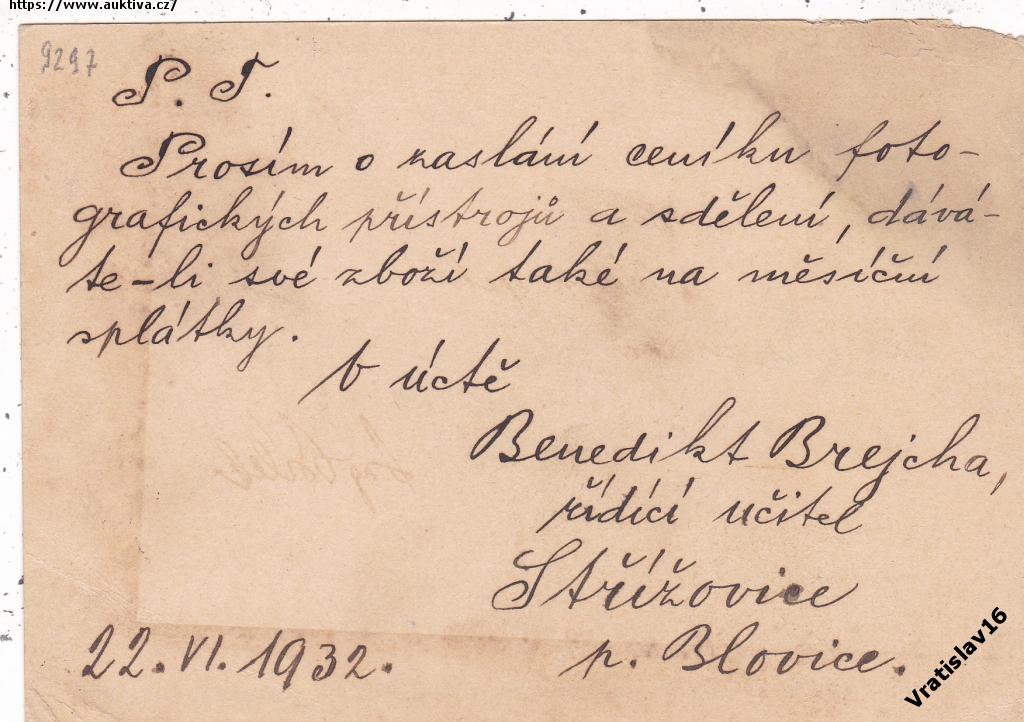 https://www.auktiva.cz/
9297
P. T.
Prosím o zaslání ceníku foto-
grafických přístrojů a sdělení, dává-
te-li své zboží také na měsíční
splátky.
V úctě
Benedikt Brejcha,
řídící učitel
Střížovice
22. VI. 1932. p. Blovice.
Vratislav16